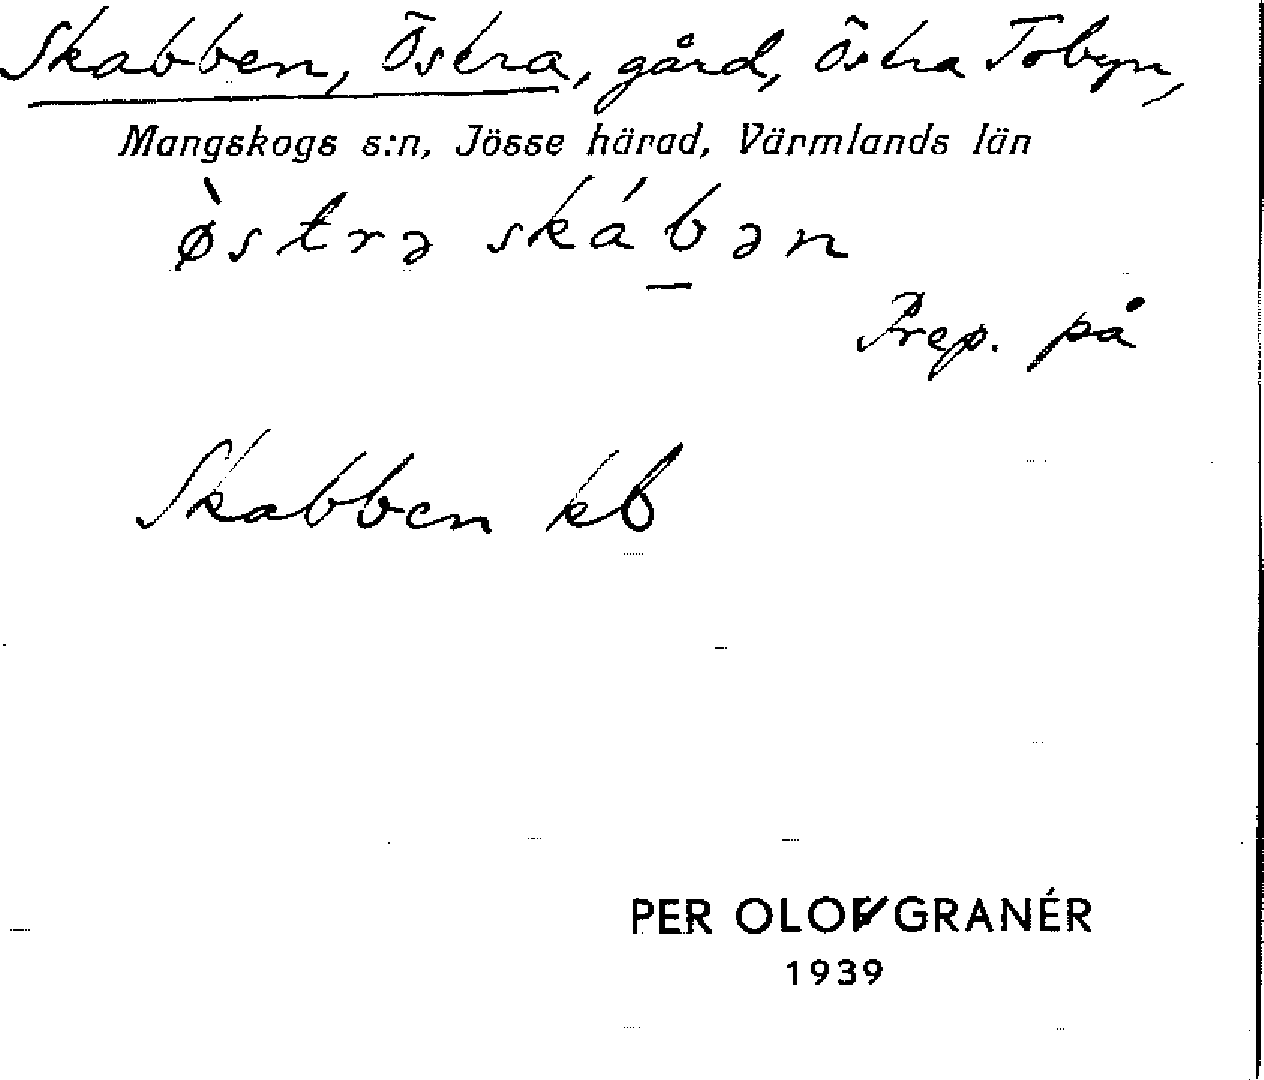 Skabben, Östra, gård, Östra Tobyn,
Mangskogs s:n, Jösse härad, Värmlands län
ø̀strə skábən
Prep. på
Skabben kb
PER OLOF GRANÉR
1939